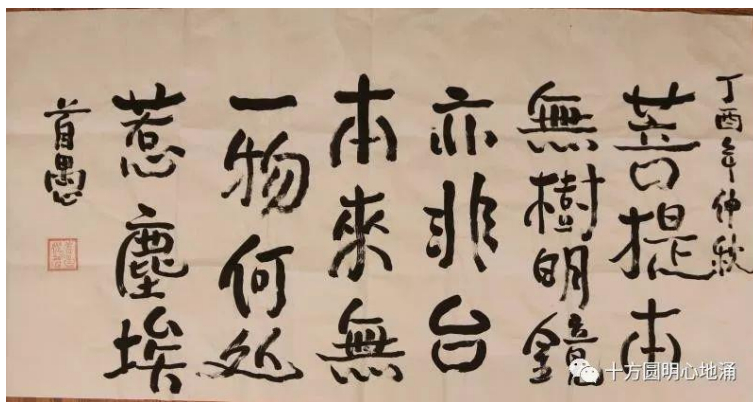 丁酉年仲秋
菩提本
無樹明鏡
亦非台
本來無
一物何处
惹塵埃
首愚
十方圆明心地涌